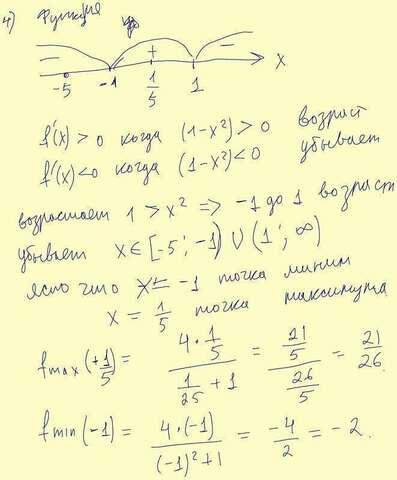 4) Функция
-5 -1 + 1/5 1 - x
f'(x) > 0 когда (1-x²) > 0 возраст
f'(x) < 0 когда (1-x²) < 0 убывает
возрастает 1 > x² => -1 до 1 возраст
убывает x ∈ [-5; -1) ∪ (1; ∞)
ясно что x = -1 точка миним
x = 1/5 точка максимума
fmax(+1/5) = (4·1/5)/(1/25 + 1) = (21/5)/(26/5) = 21/26.
fmin(-1) = (4·(-1))/((-1)²+1) = -4/2 = -2.